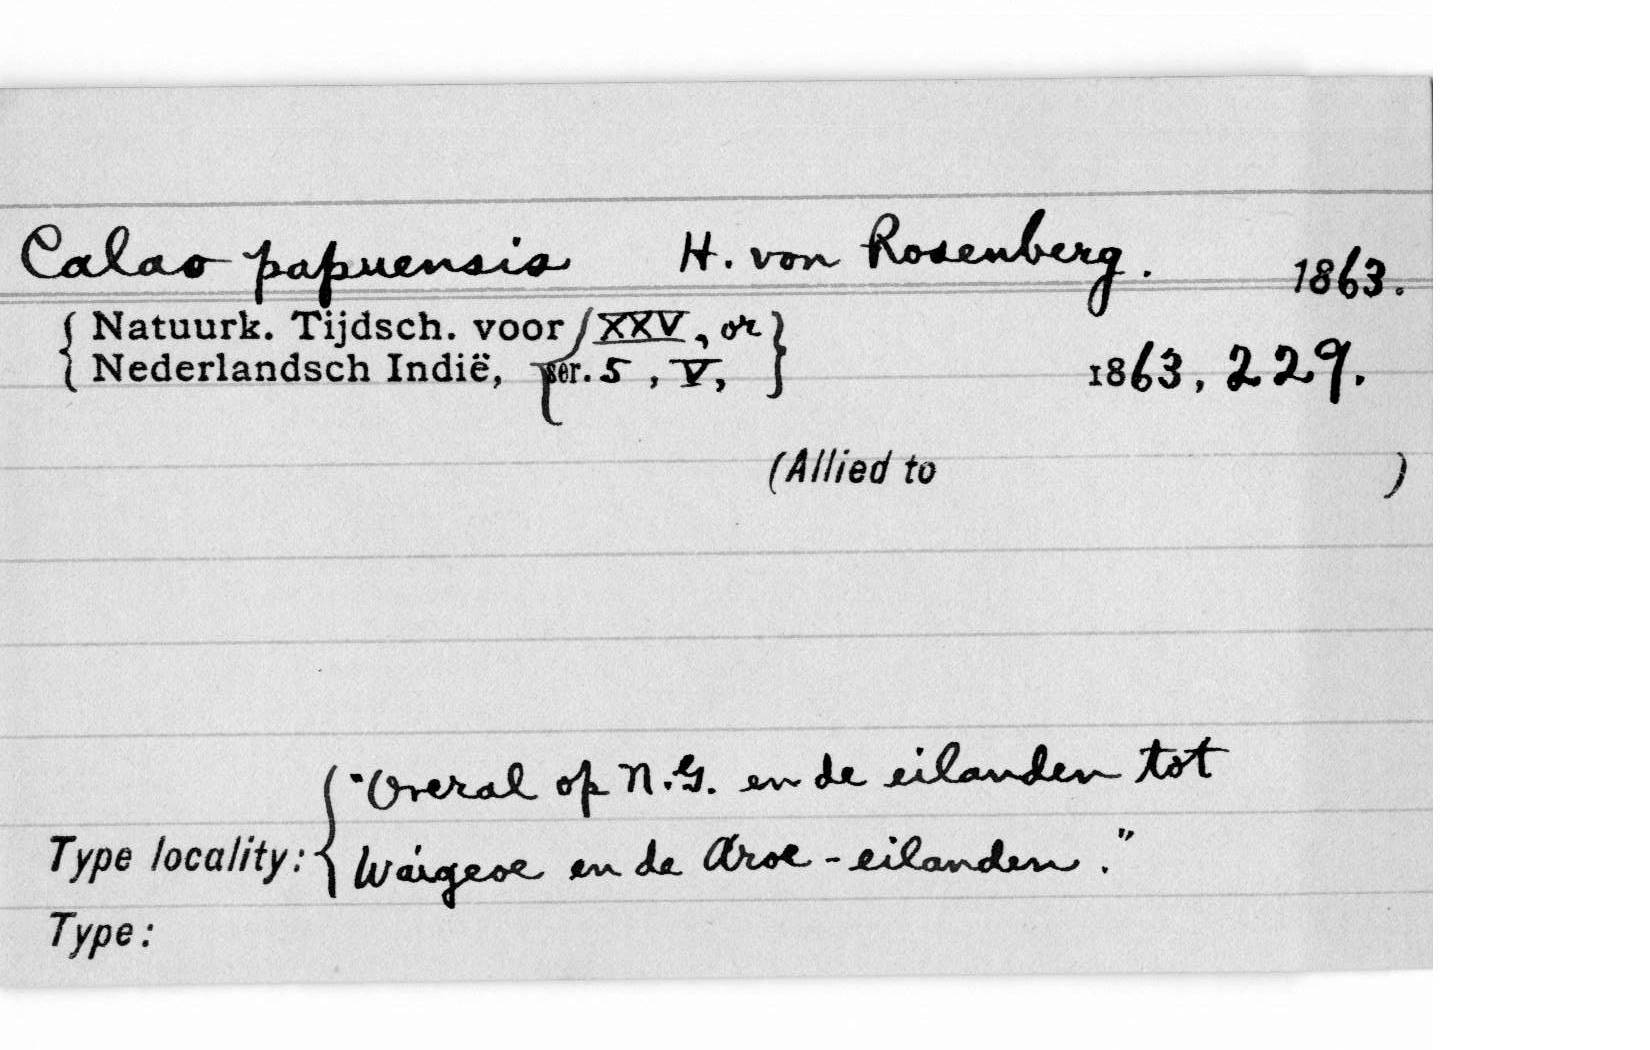 Calao papuensis H. von Rosenberg. 1863.
{ Natuurk. Tijdsch. voor { XXV, or }
{ Nederlandsch Indië, { ser. 5, V, } 1863, 229.
(Allied to )
"Overal op N.G. en de eilanden tot
Type locality: { Waigeoe en de Aroe-eilanden."
Type: